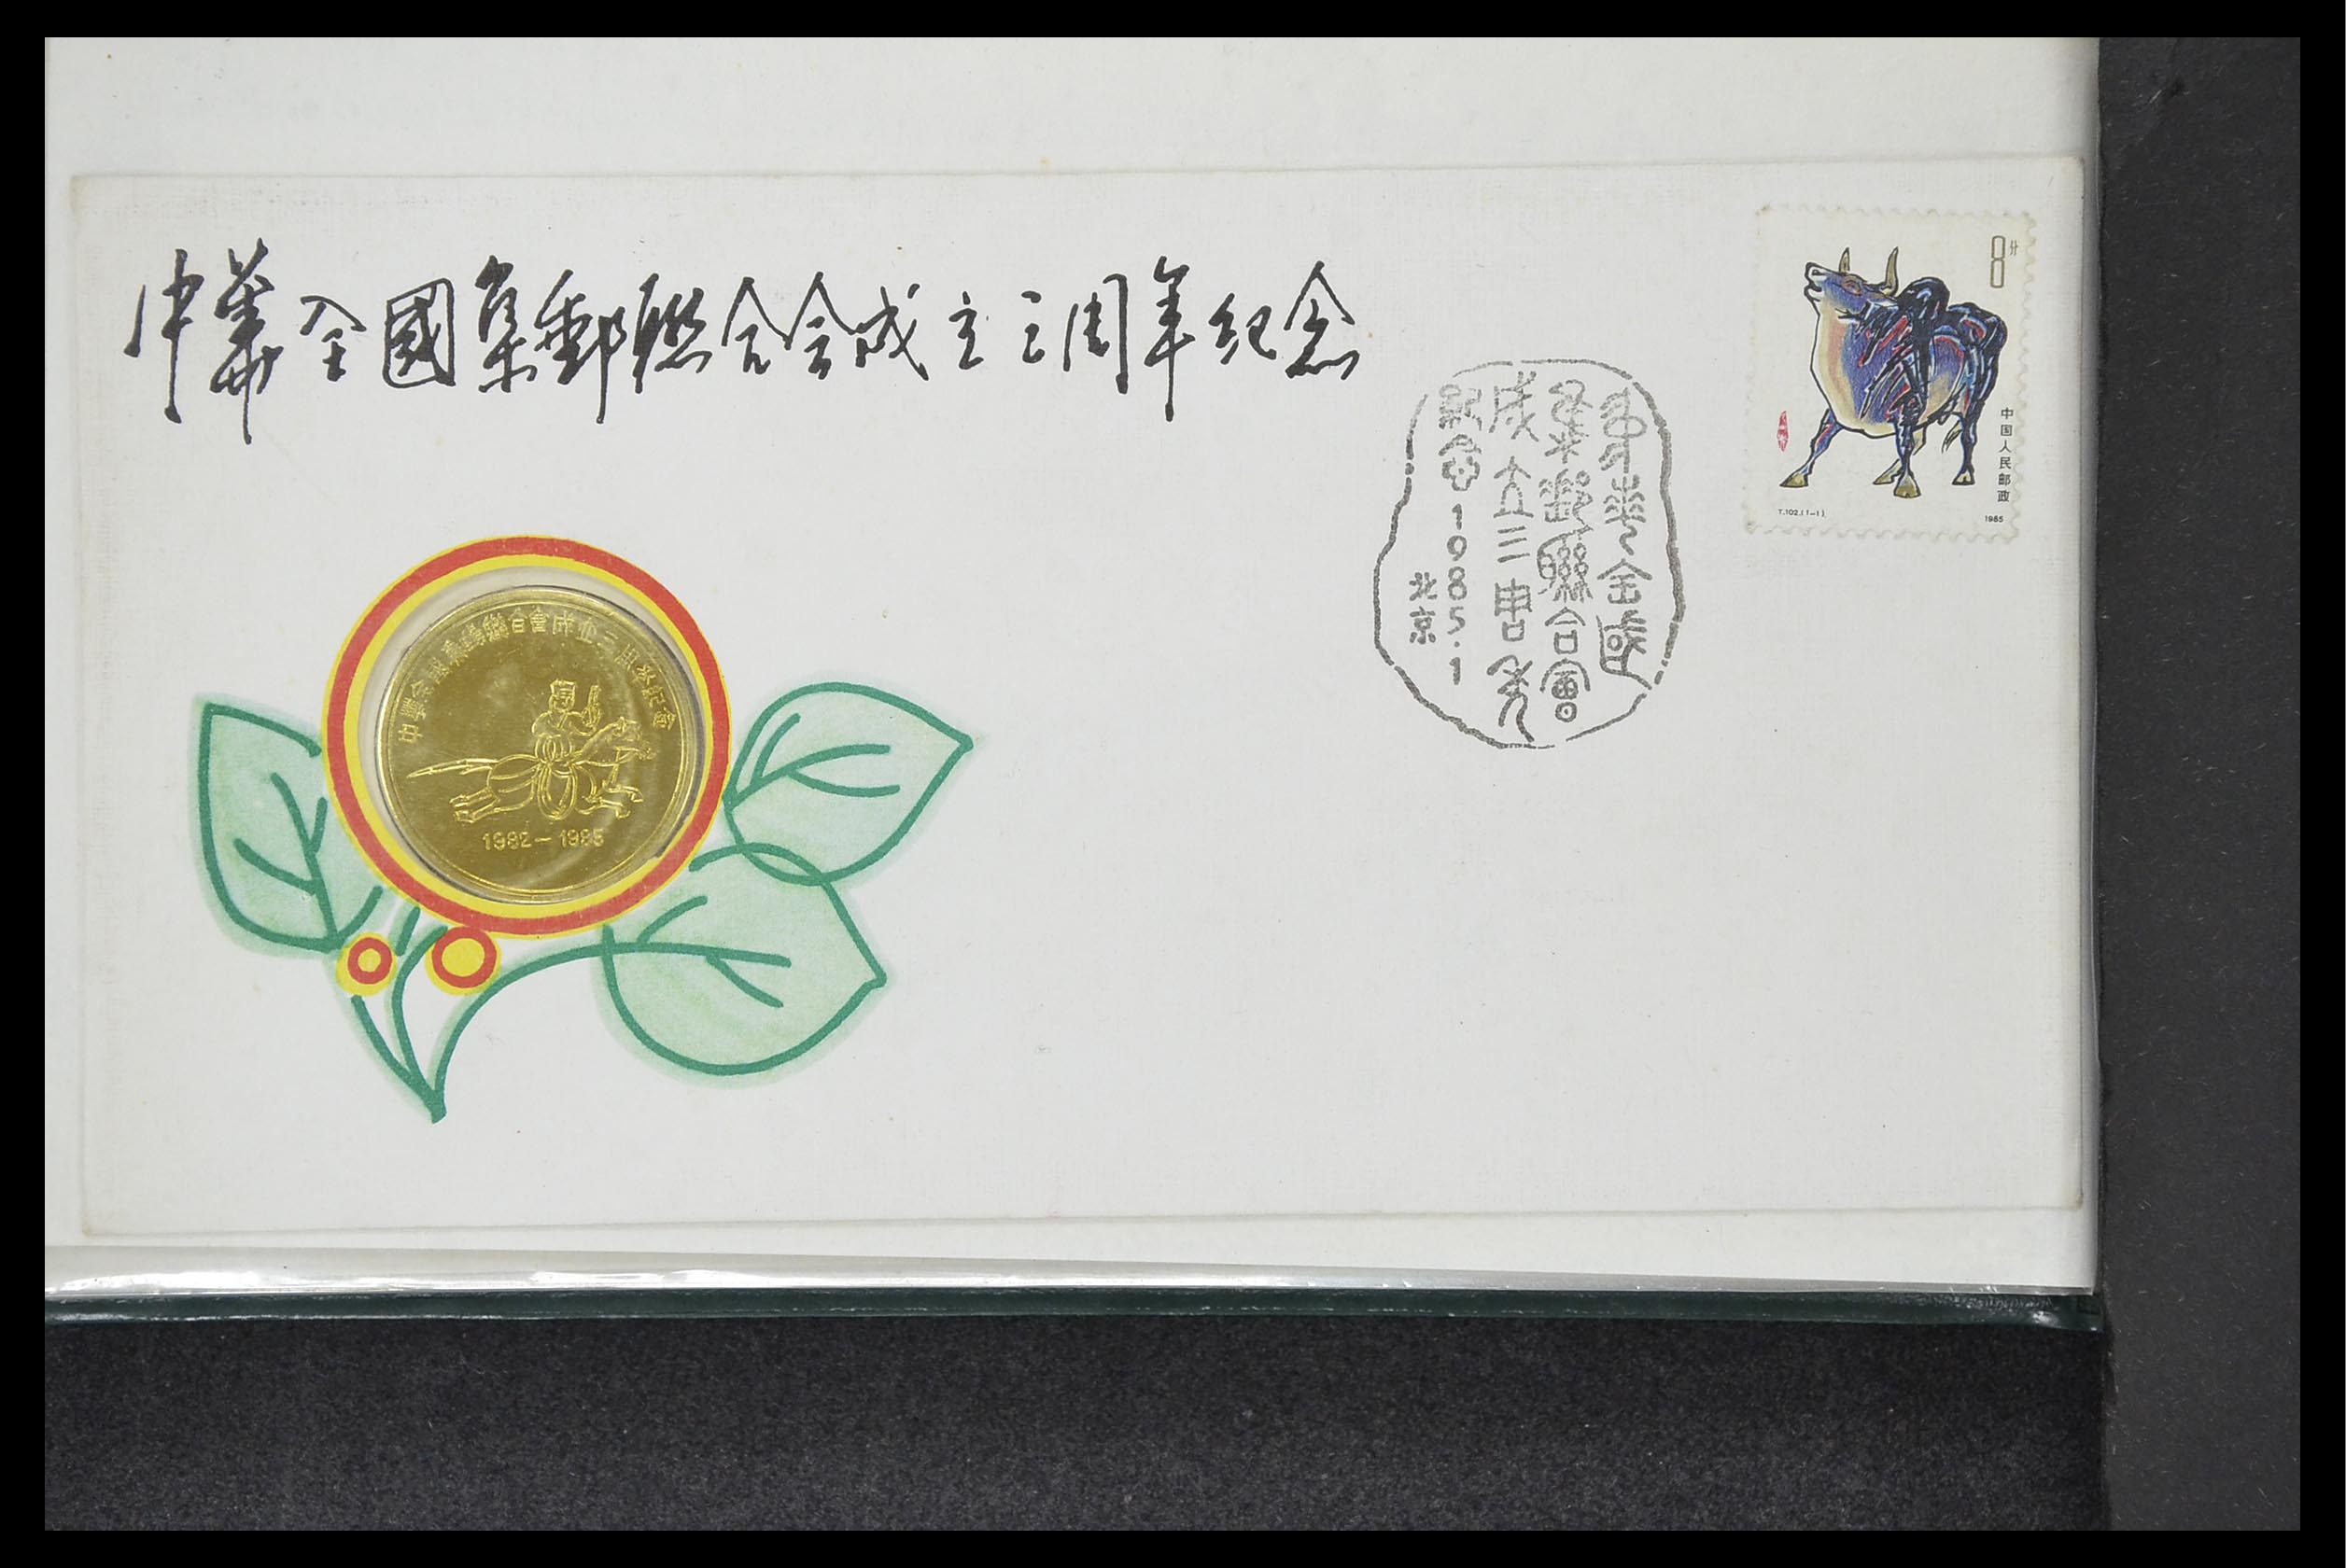 中華全國集郵聯合会成立三周年纪念
8分
中国人民邮政
T.102.(1-1).
1985
中華全國
集郵聯合會
成立三周年
紀念1985.1
北京
中華全國集郵聯合會成立三周年紀念
1982-1985